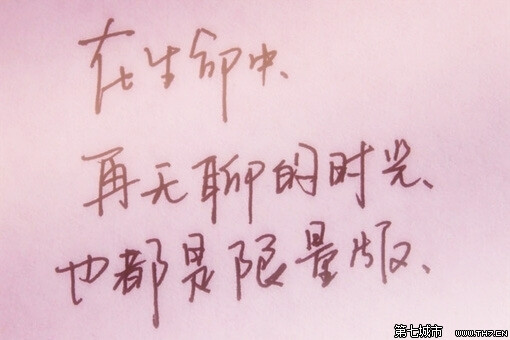 在生命中、
再无聊的时光、
也都是限量版、
第七城市 WWW.TH7.CN